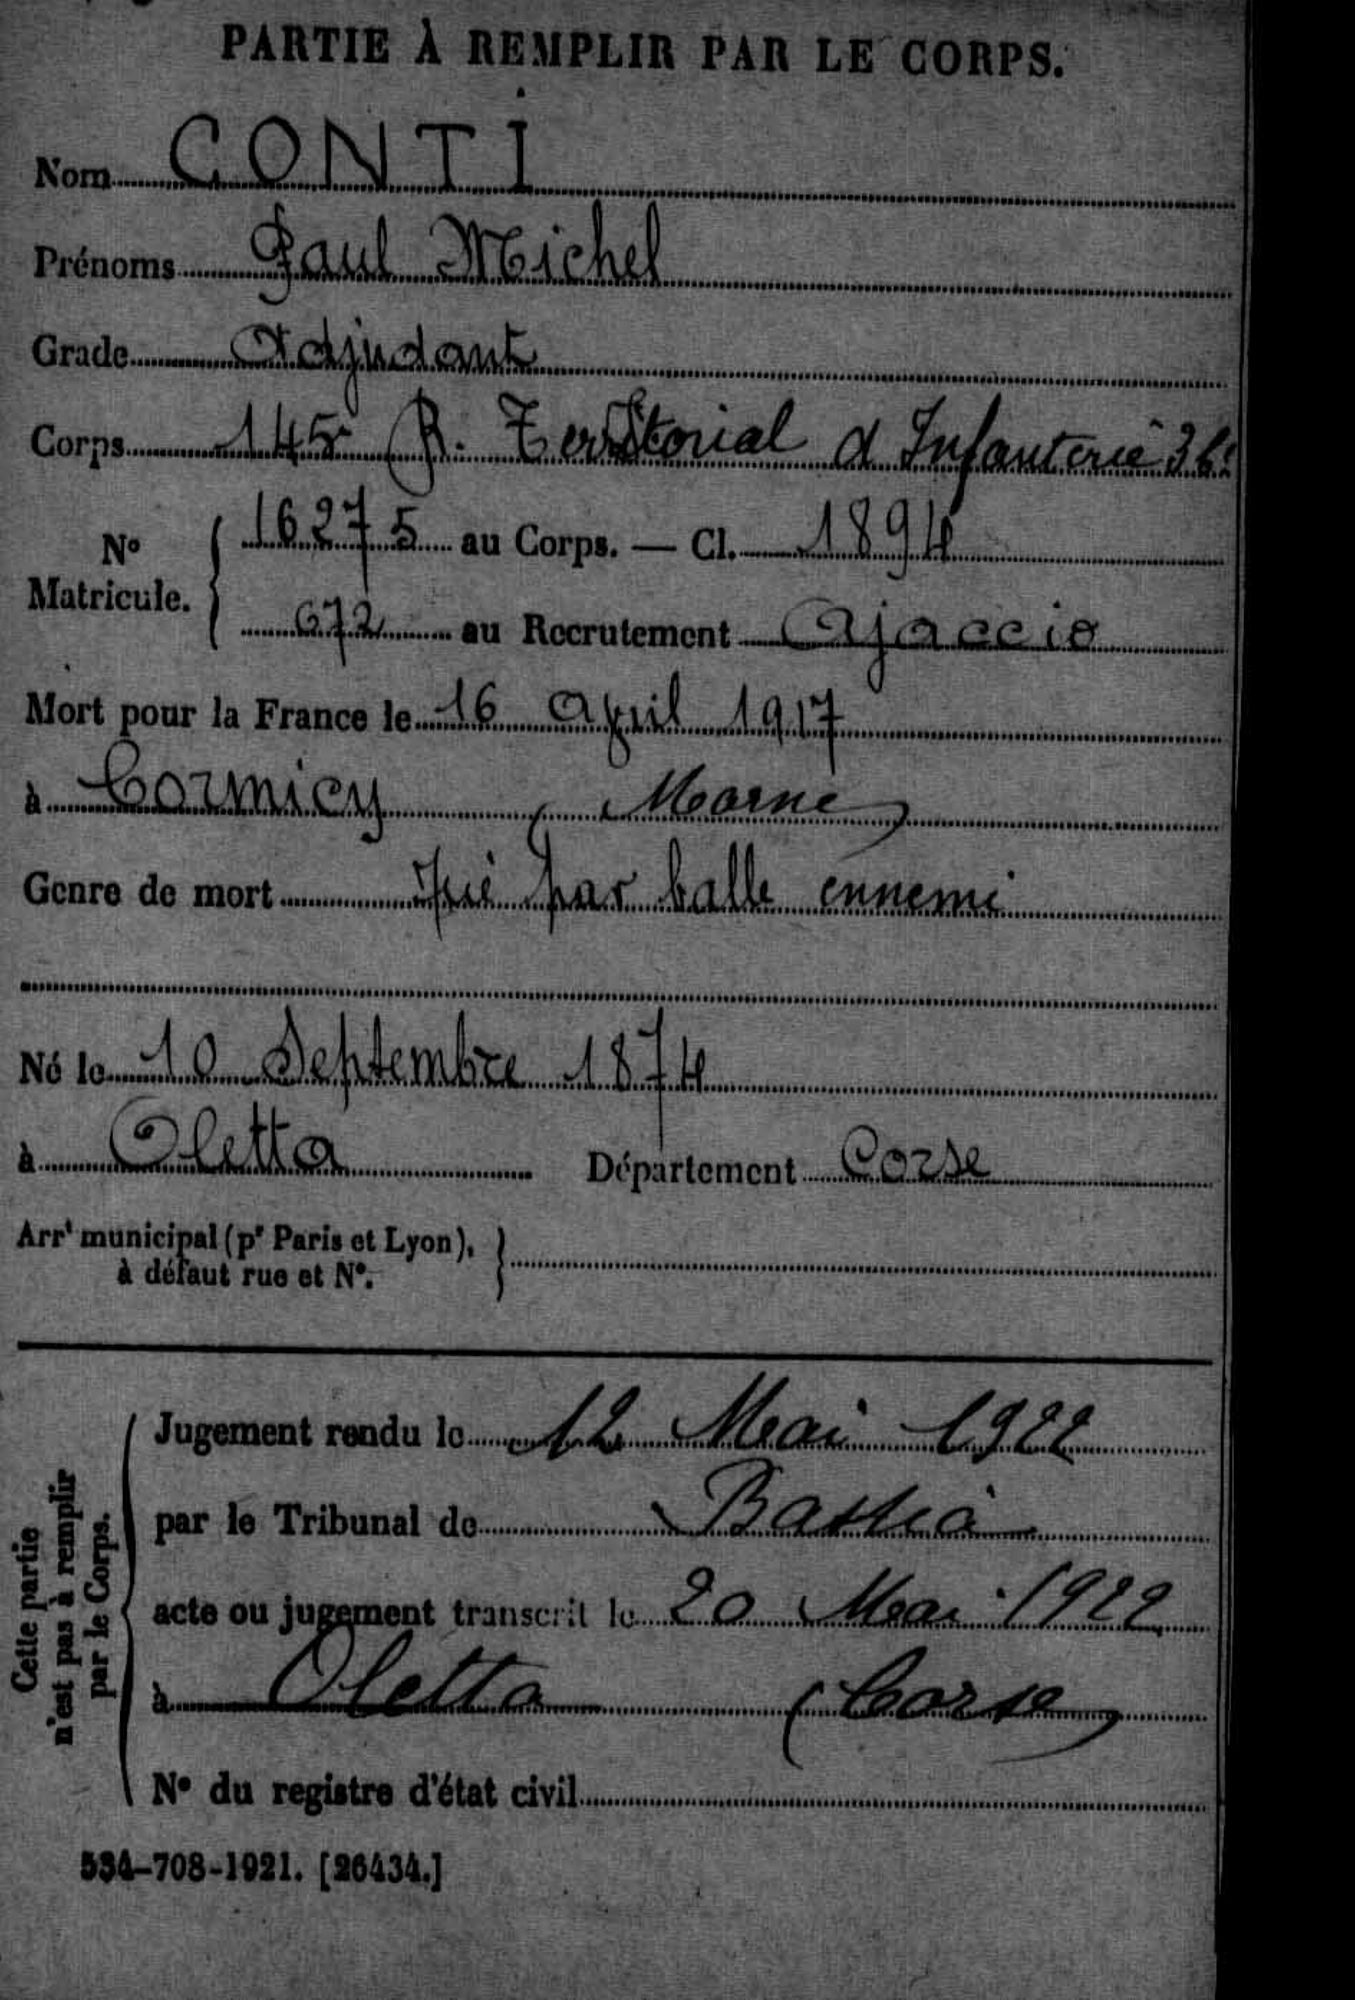 PARTIE À REMPLIR PAR LE CORPS.
Nom CONTI
Prénoms Paul Michel
Grade Adjudant
Corps 145 R. Territorial d Infanterie
N° Matricule. { 16275 au Corps. — Cl. 1894
672 au Recrutement Ajaccio
Mort pour la France le 16 Avril 1917
à Cormicy (Marne)
Genre de mort Tué par balle ennemi
Né le 10 Septembre 1874
à Oletta Département Corse
Arrt municipal (pr Paris et Lyon), }
à défaut rue et N°.
Cette partie
n'est pas à remplir
par le Corps.
Jugement rendu le 12 Mai 1922
par le Tribunal de Bastia
acte ou jugement transcrit le 20 Mai 1922
à Oletta (Corse)
N° du registre d'état civil
534-708-1921. [26434.]